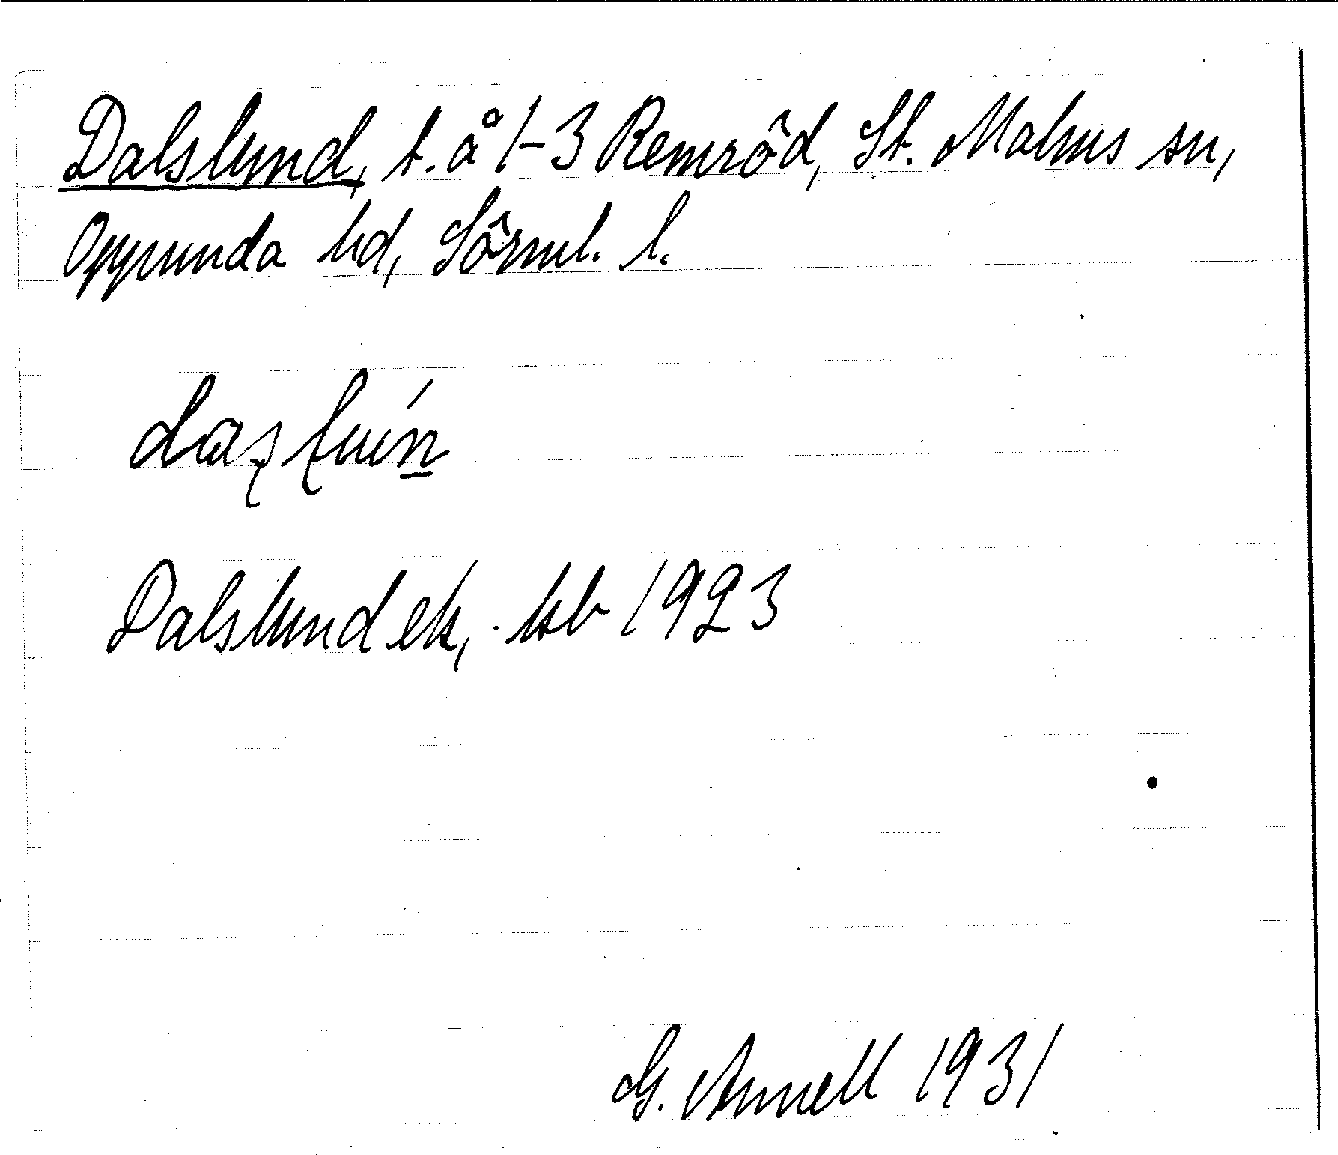 Dalslund, t. å 1-3 Remröd, St. Malms sn,
Oppunda hd, Sörml. l.
Dalslund ek, kb 1923
G. Annell 1931